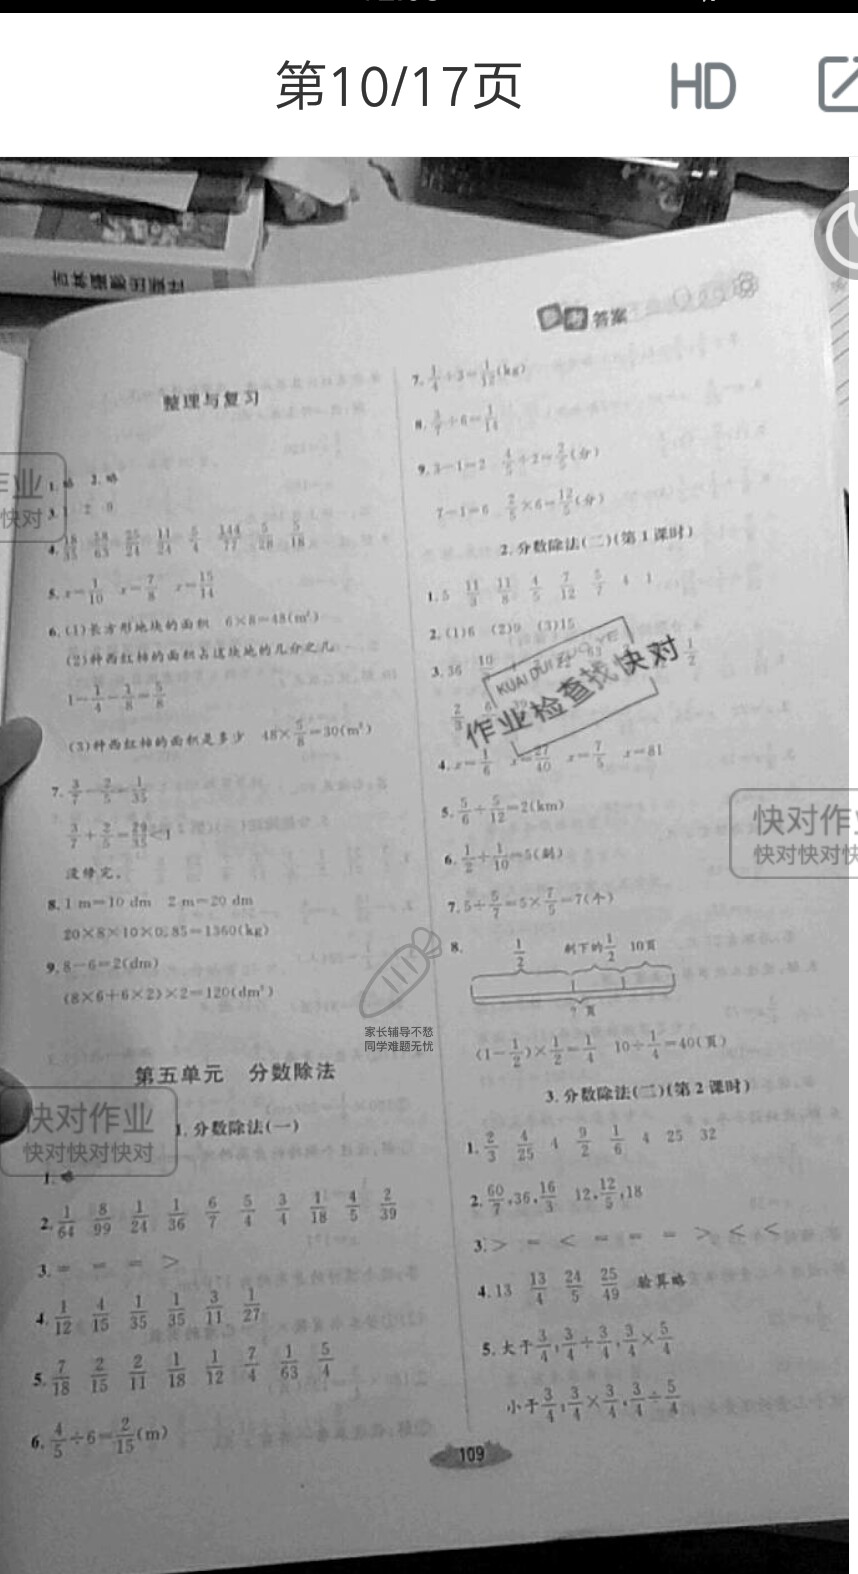 第10/17页
HD
考答案
整理与复习
1. 略 2. 略
3. 1 2 9
5. x=1/10 x=7/8 x=15/14
6. (1)长方形地块的面积 6×8=48(m²)
(2)种西红柿的面积占这块地的几分之几
1-1/4-1/8=5/8
(3)种西红柿的面积是多少 48×5/8=30(m²)
7. 3/7-2/5=1/35
3/7+2/5=29/35<1
没修完。
8. 1 m=10 dm 2 m=20 dm
20×8×10×0.85=1360(kg)
9. 8-6=2(dm)
(8×6+6×2)×2=120(dm²)
第五单元 分数除法
1. 分数除法(一)
1. 略
2. 1/64 8/99 1/24 1/36 6/7 5/4 3/4 1/18 4/5 2/39
3. = = = >
4. 1/12 4/15 1/35 1/35 3/11 1/27
5. 7/18 2/15 2/11 1/18 1/12 7/4 1/63 5/4
6. 4/5÷6=2/15(m)
7. 1/4÷3=1/12(kg)
8. 3/7÷6=1/14
9. 3-1=2 4/5÷2=2/5(分)
7-1=6 2/5×6=12/5(分)
2. 分数除法(二)(第1课时)
1. 5 11/3 11/8 4/5 7/12 5/7 4 1
2. (1)6 (2)9 (3)15
3. 36
1/2
2/3
4. x=1/6 x=27/40 x=7/5 x=81
5. 5/6÷5/12=2(km)
6. 1/2÷1/10=5(剁)
7. 5÷5/7=5×7/5=7(个)
8. 1/2 剩下的1/2 10页
? 页
(1-1/2)×1/2=1/4 10÷1/4=40(页)
3. 分数除法(二)(第2课时)
1. 2/3 4/25 4 9/2 1/6 4 25 32
2. 60/7,36,16/3 12,12/5,18
3. > = < = = = > < <
4. 13 13/4 24/5 25/49 验算略
5. 大于3/4:3/4÷3/4,3/4×5/4
小于3/4:3/4×3/4,3/4÷5/4
109
KUAI DUI ZUO YE
作业检查找快对
家长辅导不愁
同学难题无忧
业
快对
快对作
快对快对快
快对作业
快对快对快对